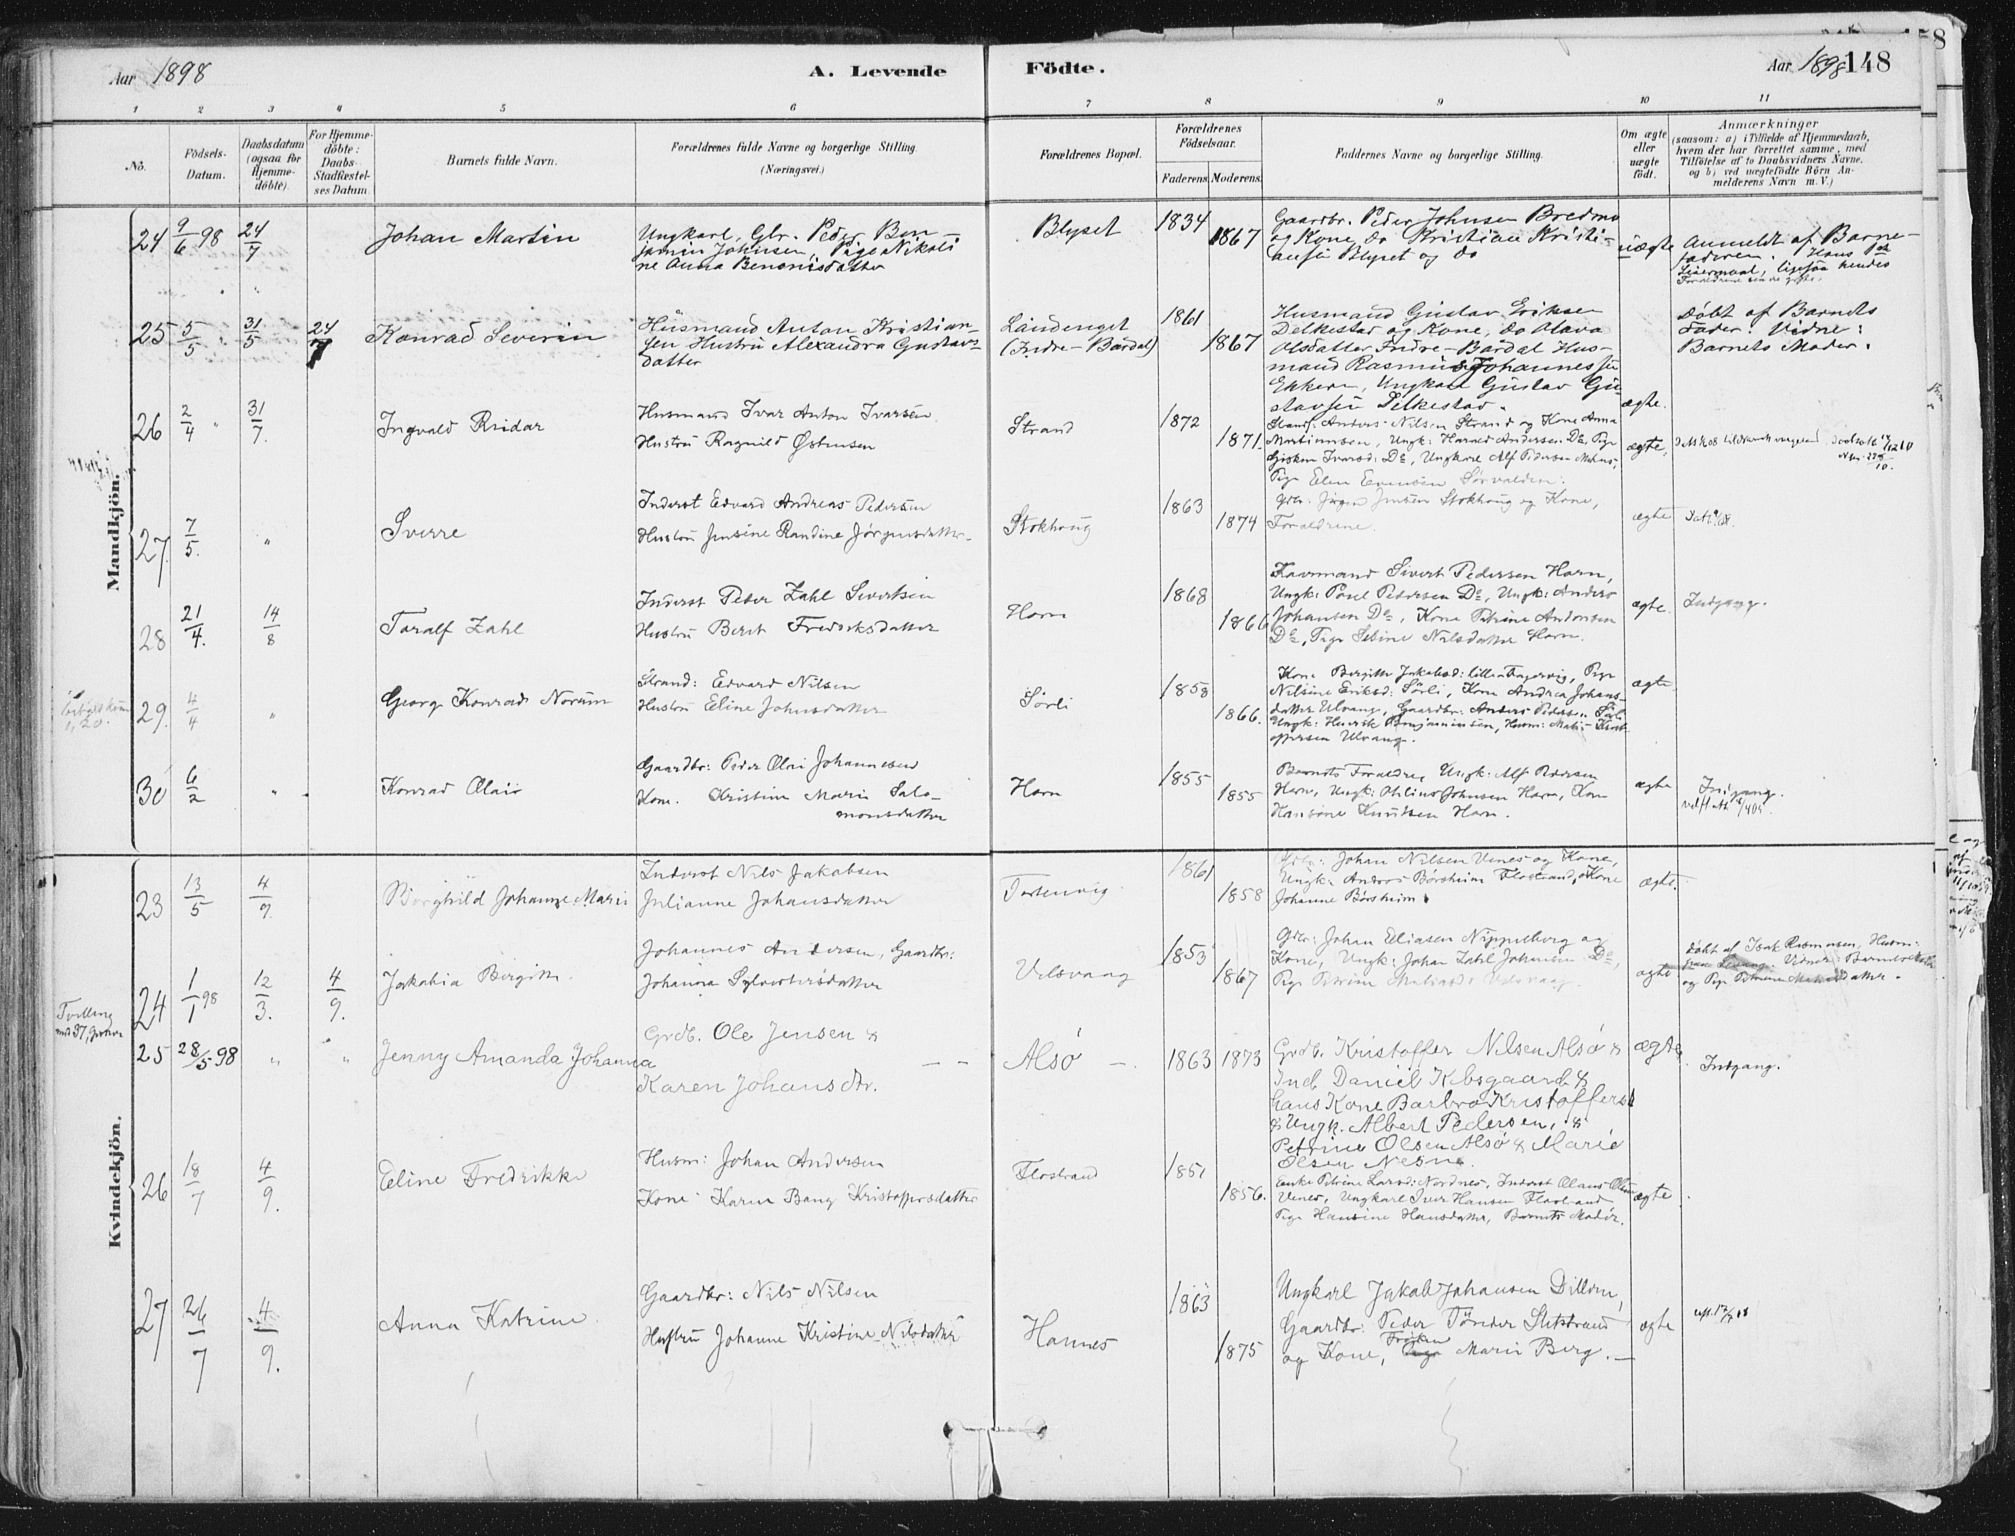 Aar 1898
A. Levende Födte.
Aar 1898 148
1 2 3 4 5 6 7 8 9 10 11
No.
Födsels-Datum.
Daabsdatum (ogsaa for Hjemme-döbte).
For Hjemme-döbte: Daabs-Stadfæstel-ses Datum
Barnets fulde Navn.
Forældrenes fulde Navne og borgerlige Stilling. (Næringsvei.)
Forældrenes Bopæl.
Forældrenes Födselsaar.
Faderens. Moderens.
Faddernes Navne og borgerlige Stilling.
Om ægte eller uægte födt.
Anmærkninger
(saasom: a) i Tilfælde af Hjemmedaab,
hvem der har forrettet samme, med
Tilföielse af to Daabsvidners Navne.
og b) ved uægtefödte Börn An-
melderens Navn m. V.)
Mandkjön.
24 9/6 98 24/7 Johan Martin
Ungkarl, Gbr. Peder Ben-
jamin Johnsen, Pige Nikoli
ne Anna Benoni
datter
Blyset 1834 1867
Gaardbr. Peder Johnsen Bredmo
og Kone, Do Kristian Kristi-
ansen Blyset og do
uægte
Anmeldt af Barne-
faderen. Hans
Leiermaal, ligesaa hendes
25 5/5 31/5 24/7 Konrad Severin
Husmand Anton Kristian-
sen Hustru Alexandra Gustavs-
datter
Landenget
(Indre-Bardal)
1861 1867
Husmand Gustav Eriksen
Selkestad og Kone, do Olava
Olsdatter Indre-Bardal Hus-
mand Rasmus Johannessen
Ekkern, Ungkarl Gustav Gu-
stavsen Selkestad.
ægte.
Döbt af Barnets
Fader. Vidne:
Barnets Moder.
26 2/4 " 31/7. Ingvald Reidar
Husmand Ivar Anton Ivarsen
Hustru Ragnild Østensen
Strand 1872 1871.
Strands. Anders Nilsen Strand og Kone Anna
Martinusen, Ungk: Harald Andersen Do, Pige
Ivarsd: Do, Ungkarl Alf Pedersen
Pige Elen Evensen Sørvalden.
ægte.
27 7/5. " Sverre
Inderst Edvard Andreas Pedersen
Hustru Jensine Randine Jørgensdatter.
Stokhaug 1863 1874
Gdb: Jørgen Jensen Stokhaug og Kone,
Forældrene.
ægte
28 21/4. 14/8 Toralf Zahl
Inderst Peder Zahl Sivertsen
Hustru Berit Fredriksdatter
Horn 1868 1866
Kaarmand Sivert Pedersen Horn,
Ungk: Povel Pedersen Do, Ungk: Anders
Johansen Do, Kone Petrine Andersen
Do, Pige Sebine Nilsdatter Horn.
ægte. Indgang.
29. 4/4 " Georg Konrad Norum
Strand: Edvard Nilsen
Hustru Eline Johnsdatter
Sörli 1858 1866.
Kone Bergitte Jakobsd: Lillea Fagervig, Pige
Nilsine Eriksd: Sörli, Kone Andrea Johans-
datter Ulvang, Gaardbr: Anders Pedersen Sörli
Ungk: Henrik Benjaminsen, Husm: Mathis Krist-
offersen Ulvang.
ægte
30 6/2 " " Konrad Olai
Gaardbr: Peder Olai Johannesen
Kone Kristine Marie Salo-
monsdatter
Horn 1855 1855
Barnets Forældre, Ungk: Alf Pedersen
Horn, Ungk: Othilius Johnsen Horn, Kone
Hansine Knutsen Horn.
ægte Indgang.
Kvindekjön.
23 13/5 4/9 Borghild Johanne Marie
Inderst Nils Jakobsen
Julianne Johansdatter
Torsenvig. 1861 1858
Gdbr: Johan Nilsen Venes og Kone,
Ungk: Andreas Börsheim Flostrand, Kone
Johanne Börsheim.
ægte.
24 1/1 98 12/3. 4/9. Jakobia Bergitte.
Johannes Andersen, Gaardbr:
Johanna Sylvestersdatter
Velsvaag 1853 1867
Gdbr: Johan Eliasen Nippelborg og
Kone, Ungk: Johan Zahl Johansen Do,
Pige Petrine Velsvaag
ægte
Döbt af Isak Rasmussen, Husm:
Tvilling
25 28/5 98 " " Jenny Amanda Johanna
Grdb. Ole Jensen &
Karen Johansdtr.
Alsö 1863 1873
Grdb. Kristoffer Nilsen Alsö &
Ind. Daniel Kibsgaard &
hans Kone Barbro Kristoffersd
& Ungk. Albert Pedersen, &
Petrine Olsen Alsö & Marie
Olsen Nesne.
ægte Indgang.
26 18/7 4/9. Eline Fredrikke
Husm: Johan Andersen
Kone Karen Bang Kristoffersdatter
Flostrand 1851 1856.
Enke Petrine Larsd: Nordnes, Inderst Olaus Olsen
Venes, Ungkarl Iver Hansen Flostrand
Pige Hansine Hansdatter, Barnets Moder.
ægte
27 26/7 4/9. Anna Katrine
Gaardbr: Nils Nilsen
Hustru Johanne Kristine Nilsdatter
Hannes 1863 1875
Ungkarl Jakob Johansen Dillern,
Gaardbr: Peder Tönder Slotstrand
og Kone, Fröken Marie Berg.
ægte